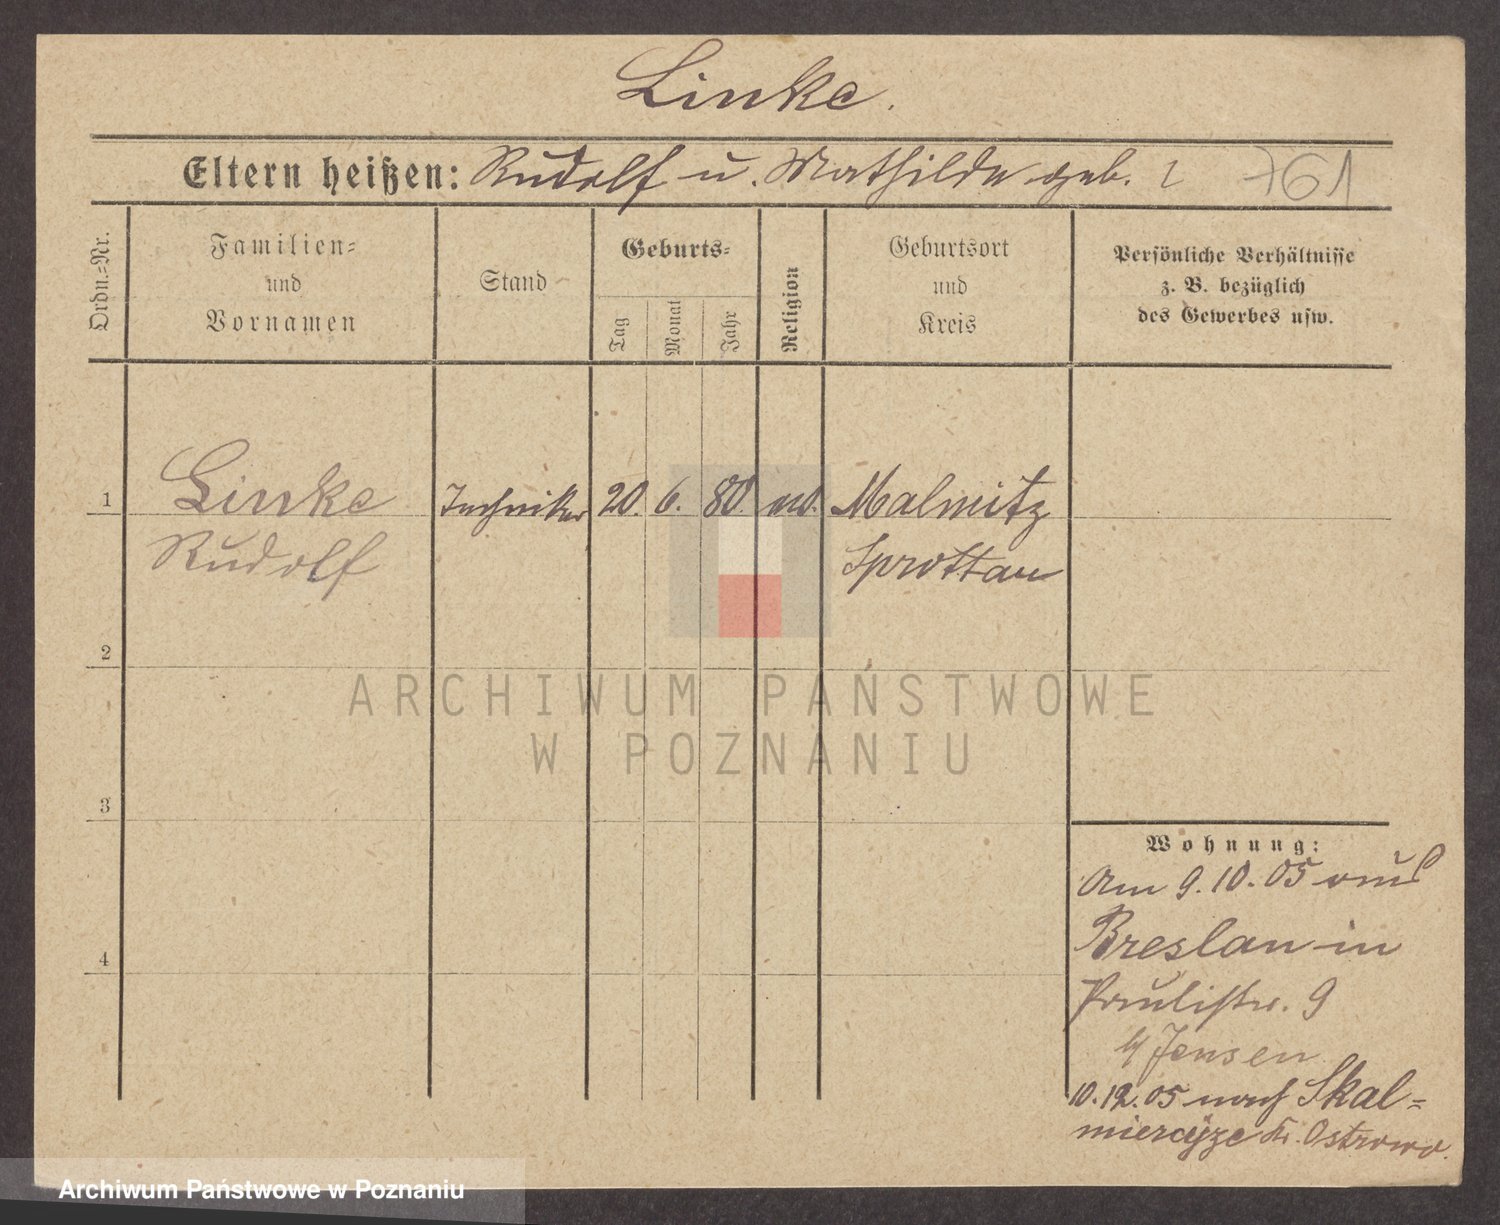 Linke.
Eltern heißen: Rudolf u. Mathilde geb. ? 761
Ordn.=Nr.
Familien=
und
Vornamen
Stand
Geburts=
Tag
Monat
Jahr
Religion
Geburtsort
und
Kreis
Persönliche Verhältnisse
z. B. bezüglich
des Gewerbes usw.
1 Linke Techniker 20. 6. 80. Malmitz
Rudolf Sprottau
2
ARCHIWUM PAŃSTWOWE
W POZNANIU
3
Wohnung:
Am 9.10.05 aus
Breslau in
Paulistr. 9
b/ Jensen
4
10.12.05 nach Skal=
mierzyze Kr. Ostrowo.
Archiwum Państwowe w Poznaniu